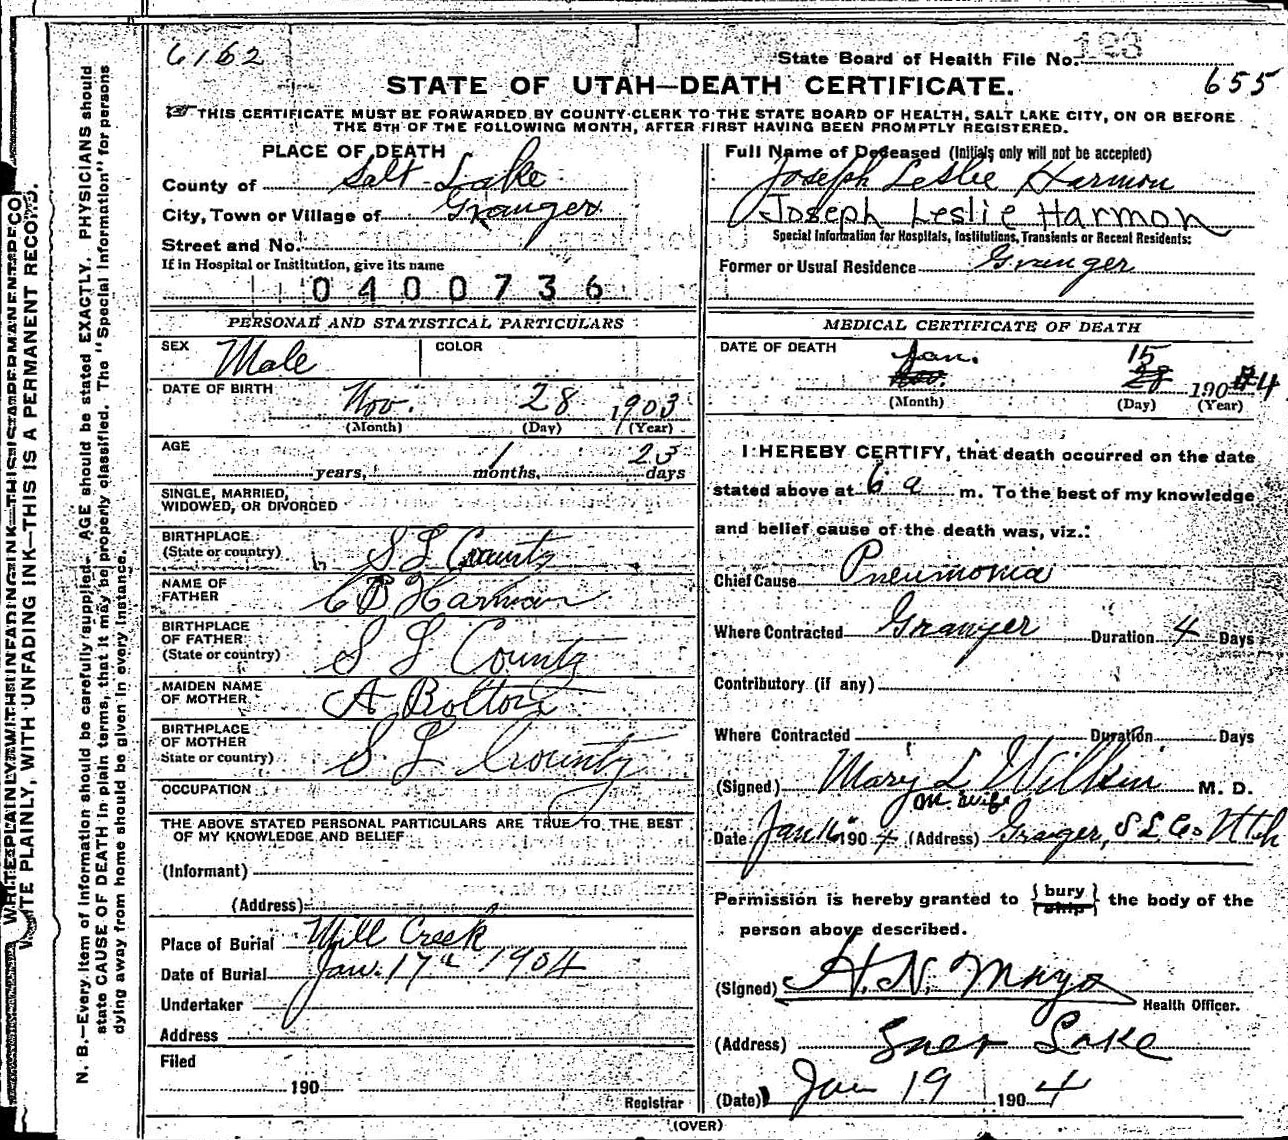 6162
State Board of Health File No. 123
655
STATE OF UTAH—DEATH CERTIFICATE.
THIS CERTIFICATE MUST BE FORWARDED BY COUNTY CLERK TO THE STATE BOARD OF HEALTH, SALT LAKE CITY, ON OR BEFORE
THE 5TH OF THE FOLLOWING MONTH, AFTER FIRST HAVING BEEN PROMPTLY REGISTERED.
WRITE PLAINLY, WITH UNFADING INK—THIS IS A PERMANENT RECORD.
N. B.—Every item of information should be carefully supplied. AGE should be stated EXACTLY. PHYSICIANS should
state CAUSE OF DEATH in plain terms, that it may be properly classified. The "Special Information" for persons
dying away from home should be given in every instance.
PLACE OF DEATH
County of Salt Lake
City, Town or Village of Granger
Street and No.
If in Hospital or Institution, give its name
0400736
PERSONAL AND STATISTICAL PARTICULARS
SEX Male COLOR
DATE OF BIRTH Nov. 28 1903
(Month) (Day) (Year)
AGE
years, 1 months, 23 days
SINGLE, MARRIED,
WIDOWED, OR DIVORCED
BIRTHPLACE
(State or country) S L County
NAME OF
FATHER C B Harman
BIRTHPLACE
OF FATHER
(State or country) S L County
MAIDEN NAME
OF MOTHER A Bolton
BIRTHPLACE
OF MOTHER
State or country) S L County
OCCUPATION
THE ABOVE STATED PERSONAL PARTICULARS ARE TRUE TO THE BEST
OF MY KNOWLEDGE AND BELIEF
(Informant)
(Address)
Place of Burial Mill Creek
Date of Burial Jan. 17th 1904
Undertaker
Address
Filed
190
Registrar
Full Name of Deceased (Initials only will not be accepted)
Joseph Leslie Harmon
Joseph Leslie Harmon
Special Information for Hospitals, Institutions, Transients or Recent Residents:
Former or Usual Residence Granger
MEDICAL CERTIFICATE OF DEATH
DATE OF DEATH Jan. 15
Nov. 28 1904
(Month) (Day) (Year)
I HEREBY CERTIFY, that death occurred on the date
stated above at 6 a m. To the best of my knowledge
and belief cause of the death was, viz.:
Chief Cause Pneumonia
Where Contracted Granger Duration 4 Days
Contributory (if any)
Where Contracted Duration Days
(Signed) Mary L Wilkin M. D.
M. Wife
Date Jan 16 1904 (Address) Granger, S L Co Utah
Permission is hereby granted to {bury
ship} the body of the
person above described.
(Signed) H. N. Mayo
Health Officer.
(Address) Lake
(Date) Jan 19 1904
(OVER)